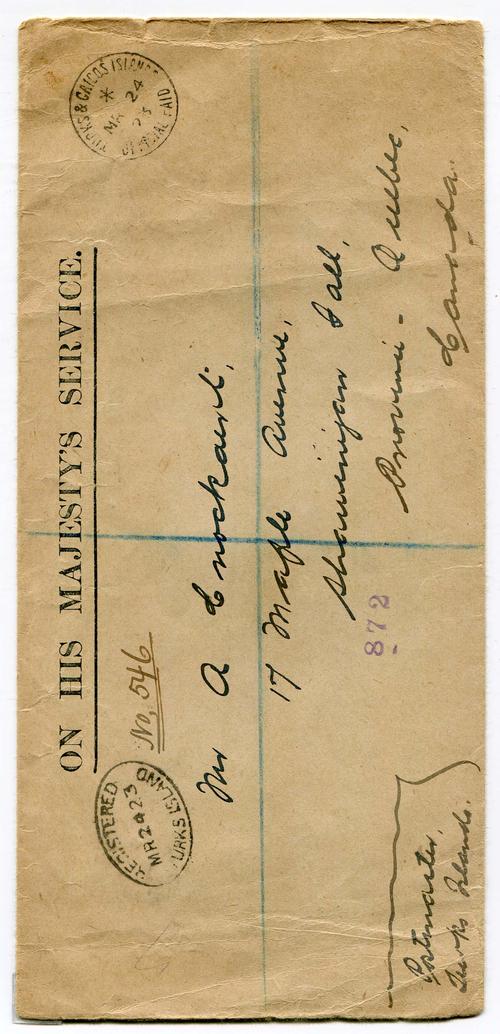 ON HIS MAJESTY'S SERVICE.
TURKS & CAICOS ISLANDS
*
MR 24
23
OFFICIAL PAID
REGISTERED
MR2423
TURKS ISLAND
No. 546
Mr A Cnockaert,
17 Maple Avenue,
Shawinigan Fall,
Province - Quebec,
Canada.
872
Postmaster,
Turks Islands.